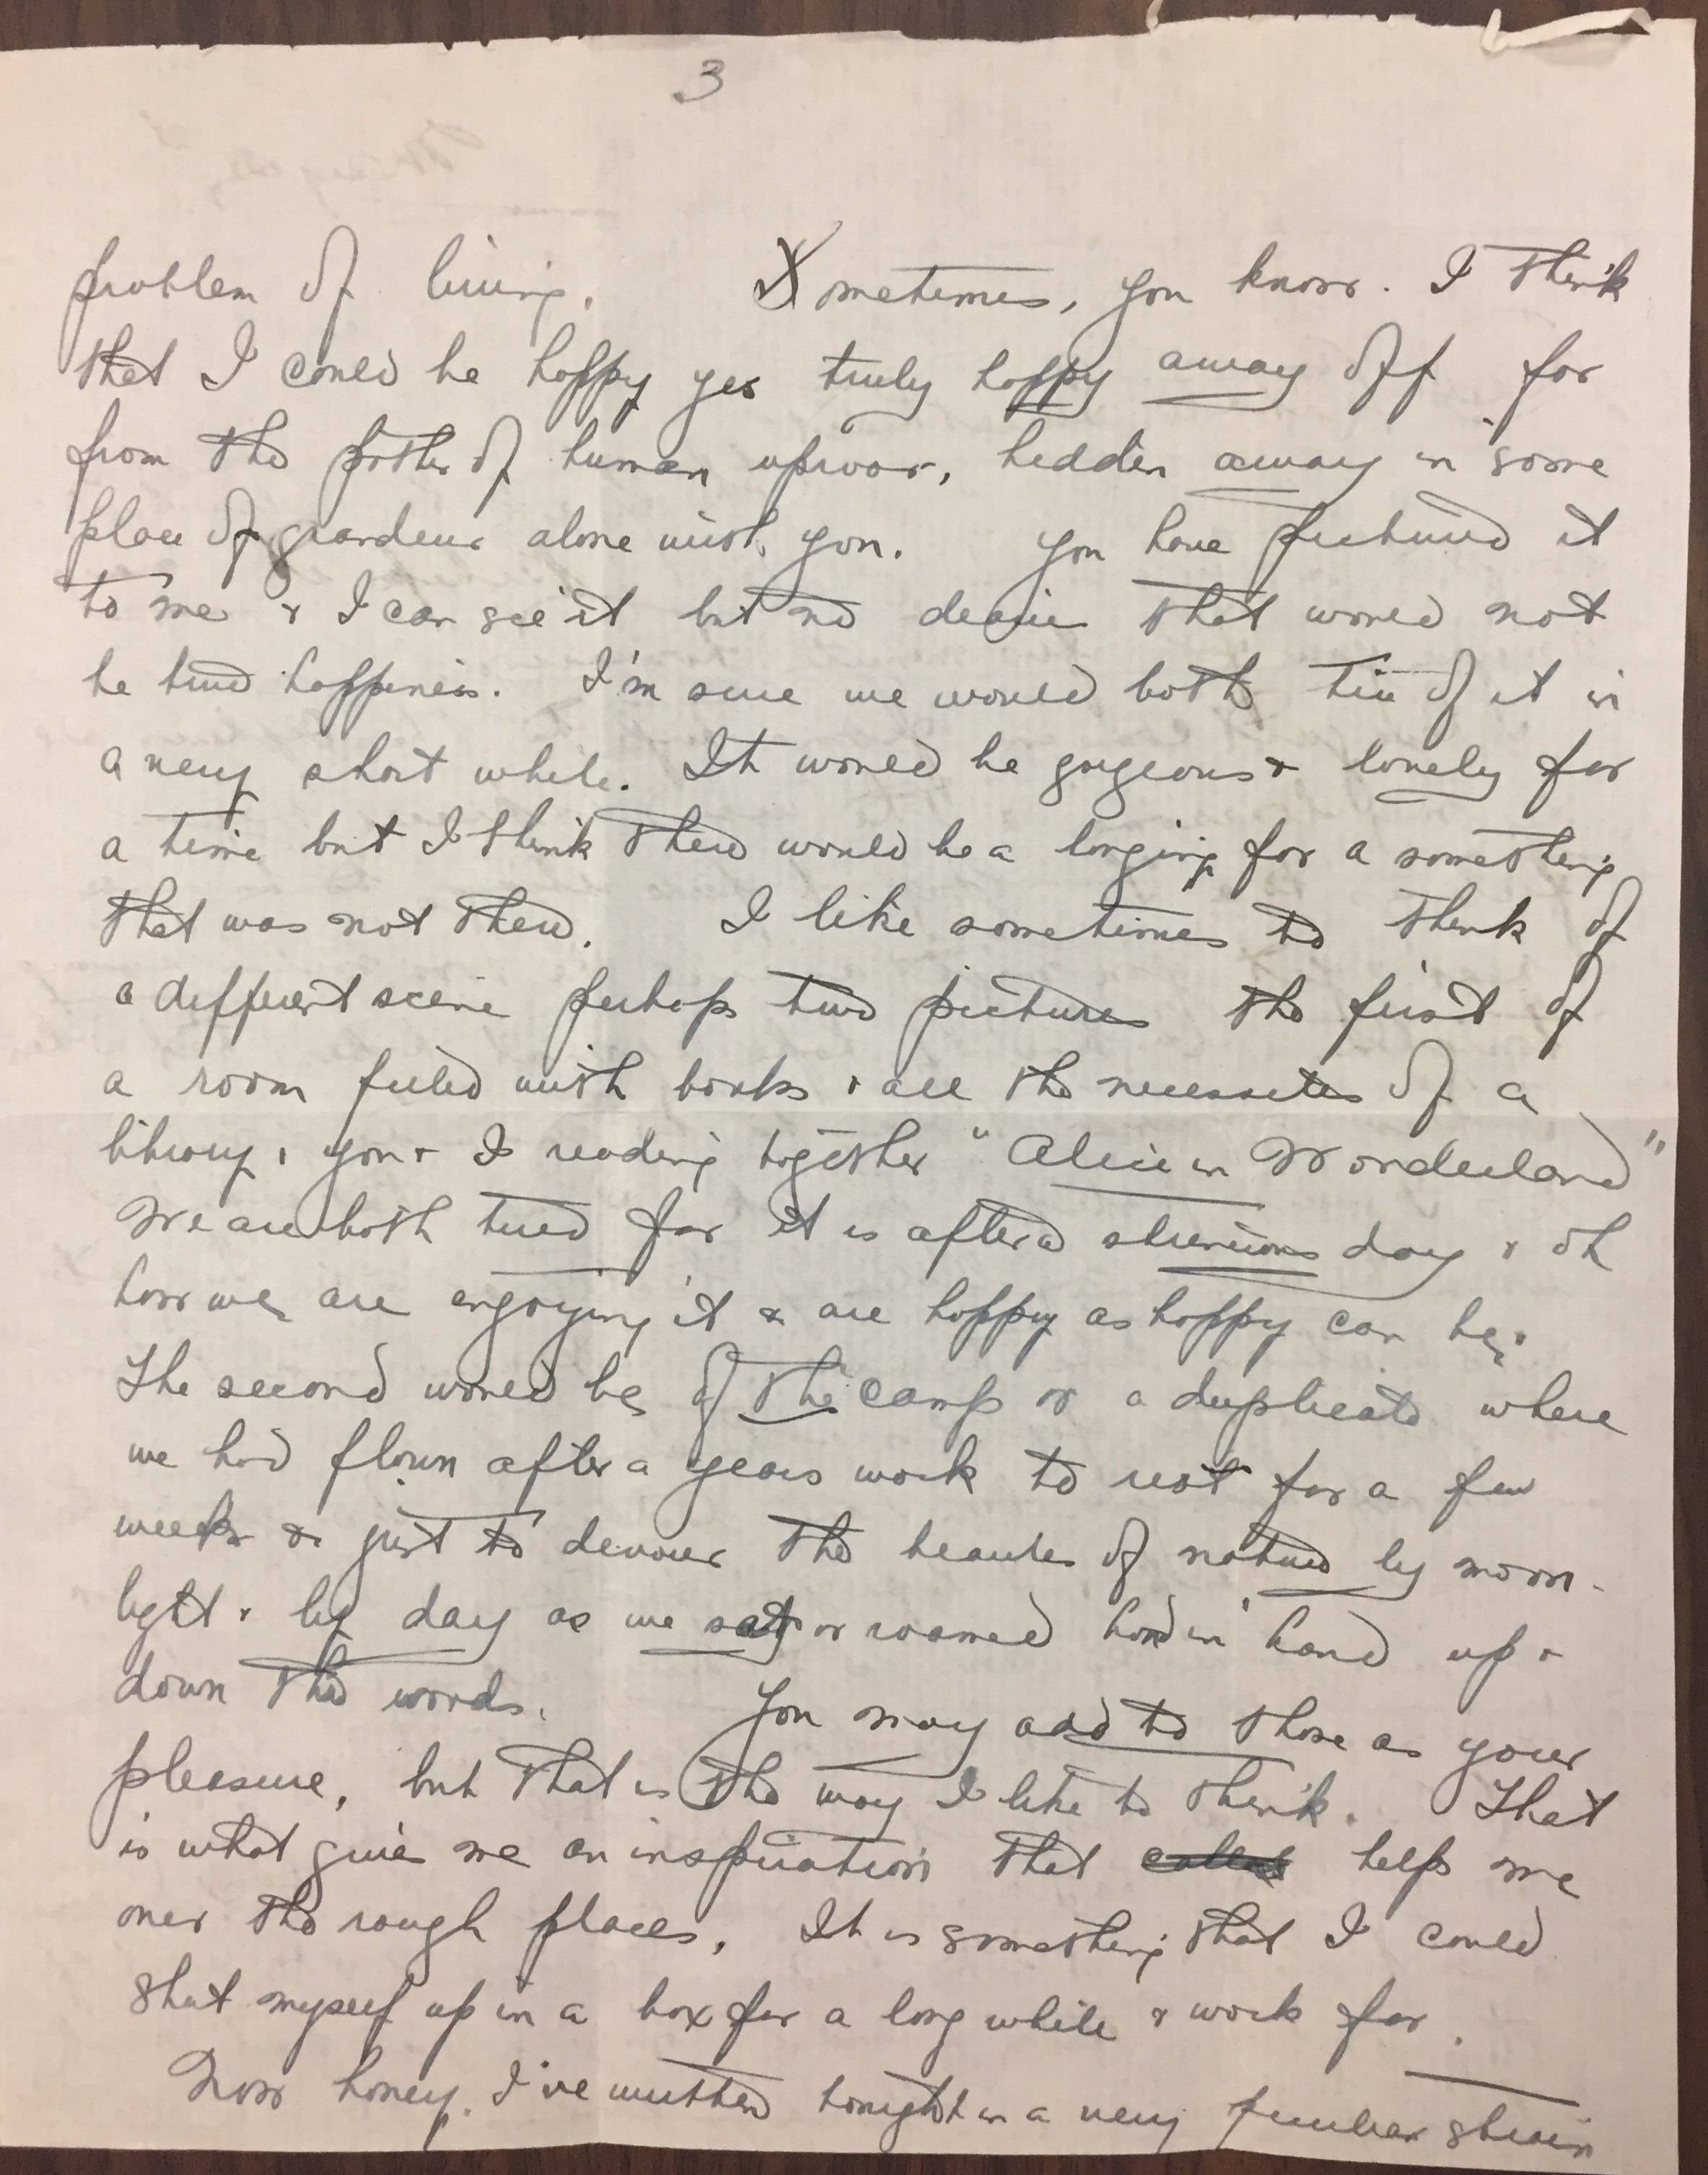 3
problem of living. Sometimes, you know. I think
that I could be happy yes truly happy away off far
from the pother of human uproar, hidden away in some
place of grandeur alone with you. You have pictured it
to me & I can see it but no dearie that would not
be true happiness. I'm sure we would both tire of it in
a very short while. It would be gorgeous & lovely for
a time but I think there would be a longing for a something
that was not there. I like sometimes to think of
a different scene perhaps two pictures the first of
a room filled with books & all the necessites of a
library & you & I reading together "Alice in Wonderland"
We are both tired for it is after a strenuous day & oh
how we are enjoying it & are happy as happy can be.
The second would be of the camp or a duplicate where
we had flown after a years work to rest for a few
weeks & just to devour the beauties of nature by moon-
light & by day as we sat or roamed hand in hand up &
down the woods. You may add to those as your
pleasure, but that is the way I like to think. That
is what gives me an inspiration that helps me
over the rough places. It is something that I could
shut myself up in a box for a long while & work for.
Now honey. I've written tonight in a very peculiar strain